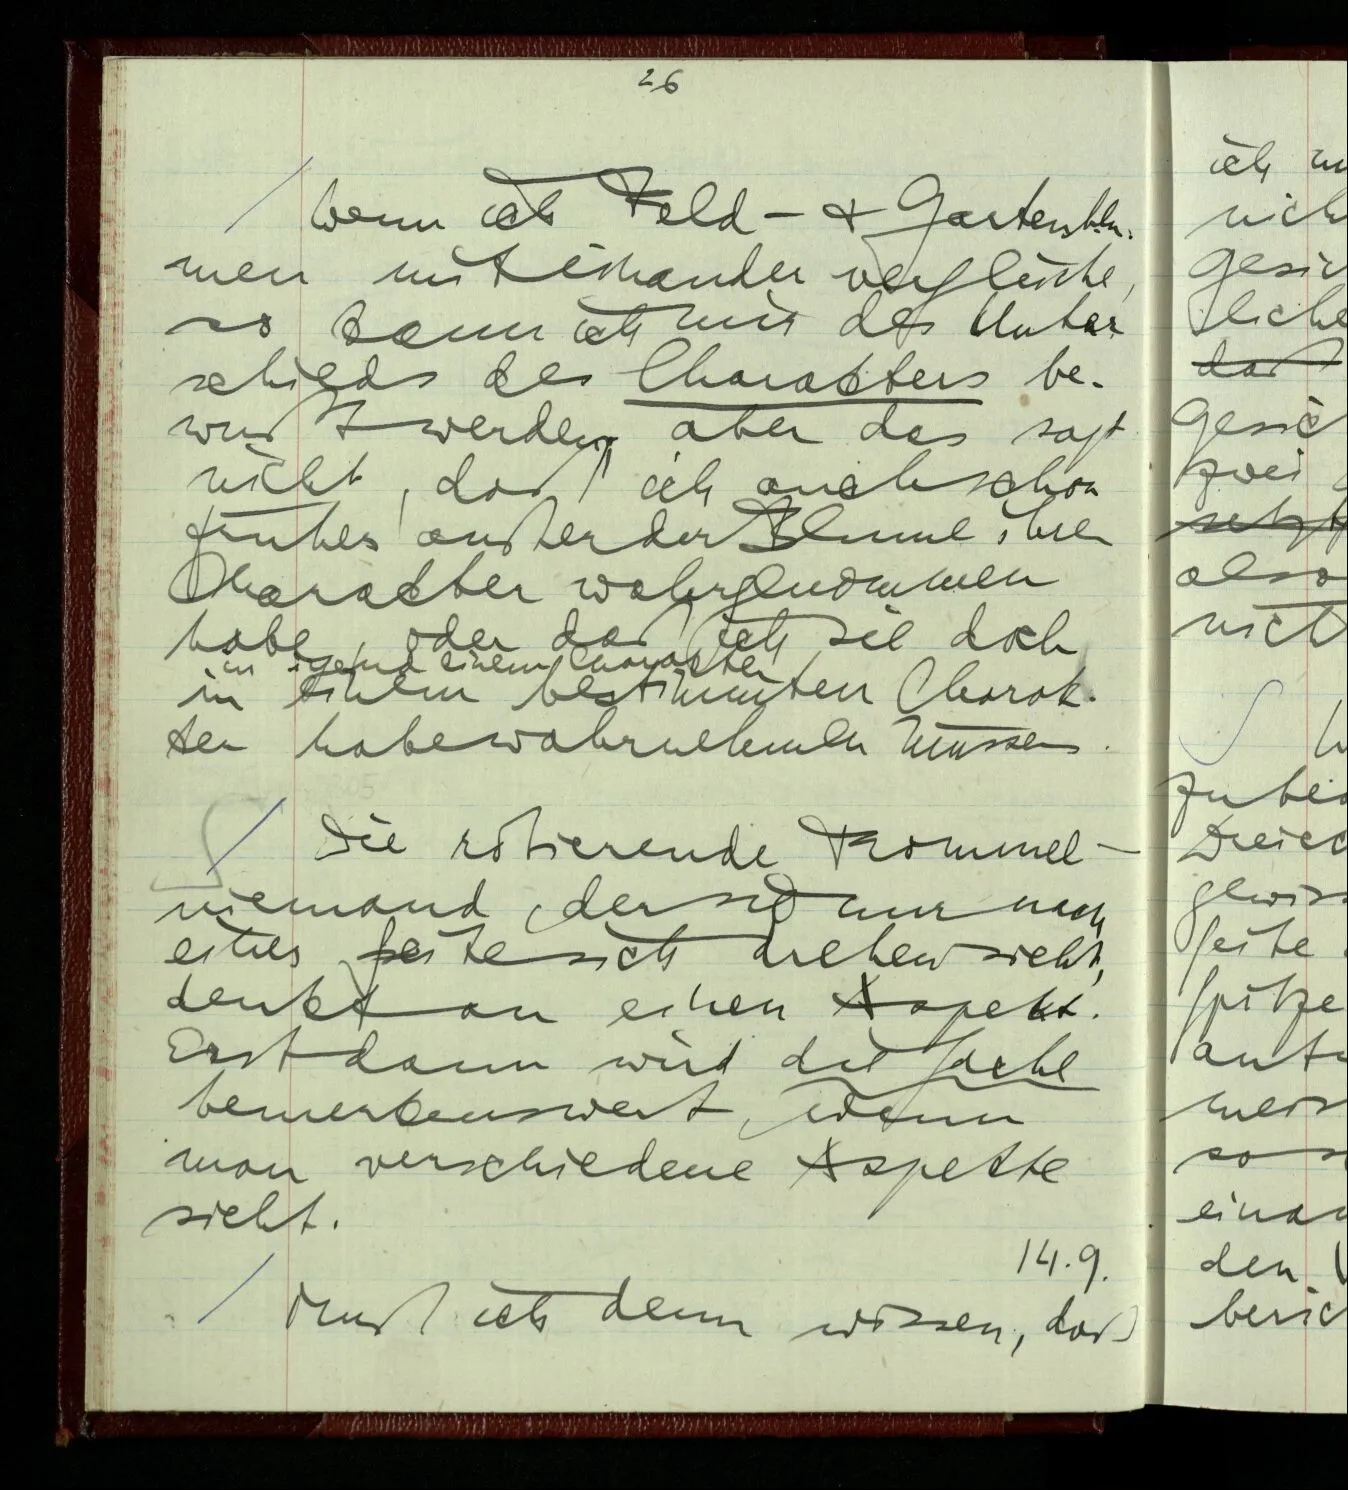 26
Wenn ich Feld- & Gartenblu-
men miteinander vergleiche,
so kann ich mir des Unter
schieds des Charakters be-
wußt werden, aber das sagt
nicht, daß ich auch schon
früher außer der Blume ihren
Charakter wahrgenommen
habe, oder daß ich sie doch
in irgend einem Charakter
in einem bestimmten Charak-
ter habe wahrnehmen müssen.
Die rotierende Trommel –
niemand, der sie nur nach
einer Seite sich drehen sieht,
denkt an einen Aspekt.
Erst dann wird die Sache
bemerkenswert, wenn
man verschiedene Aspekte
sieht.
14.9.
Muß ich denn wissen, daß
ich
nich
gesic
liche
das
gesic
zwei
setzt
also
nicht
zu bei
Dreiec
gewiss
Seite
Spitze
meis
so
einan
den.
beric